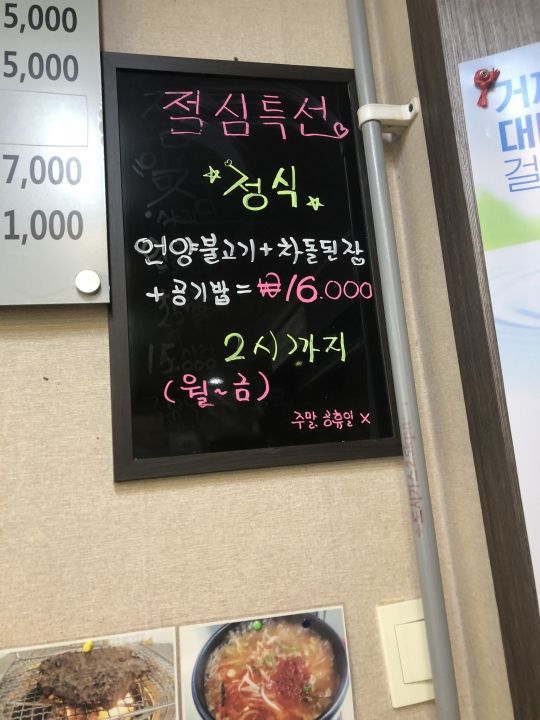 5,000
5,000
7,000
1,000
점심특선
정식
언양불고기+차돌된장
+공기밥=₩16.000
2시까지
(월~금)
주말, 공휴일 X
거제
대
걸